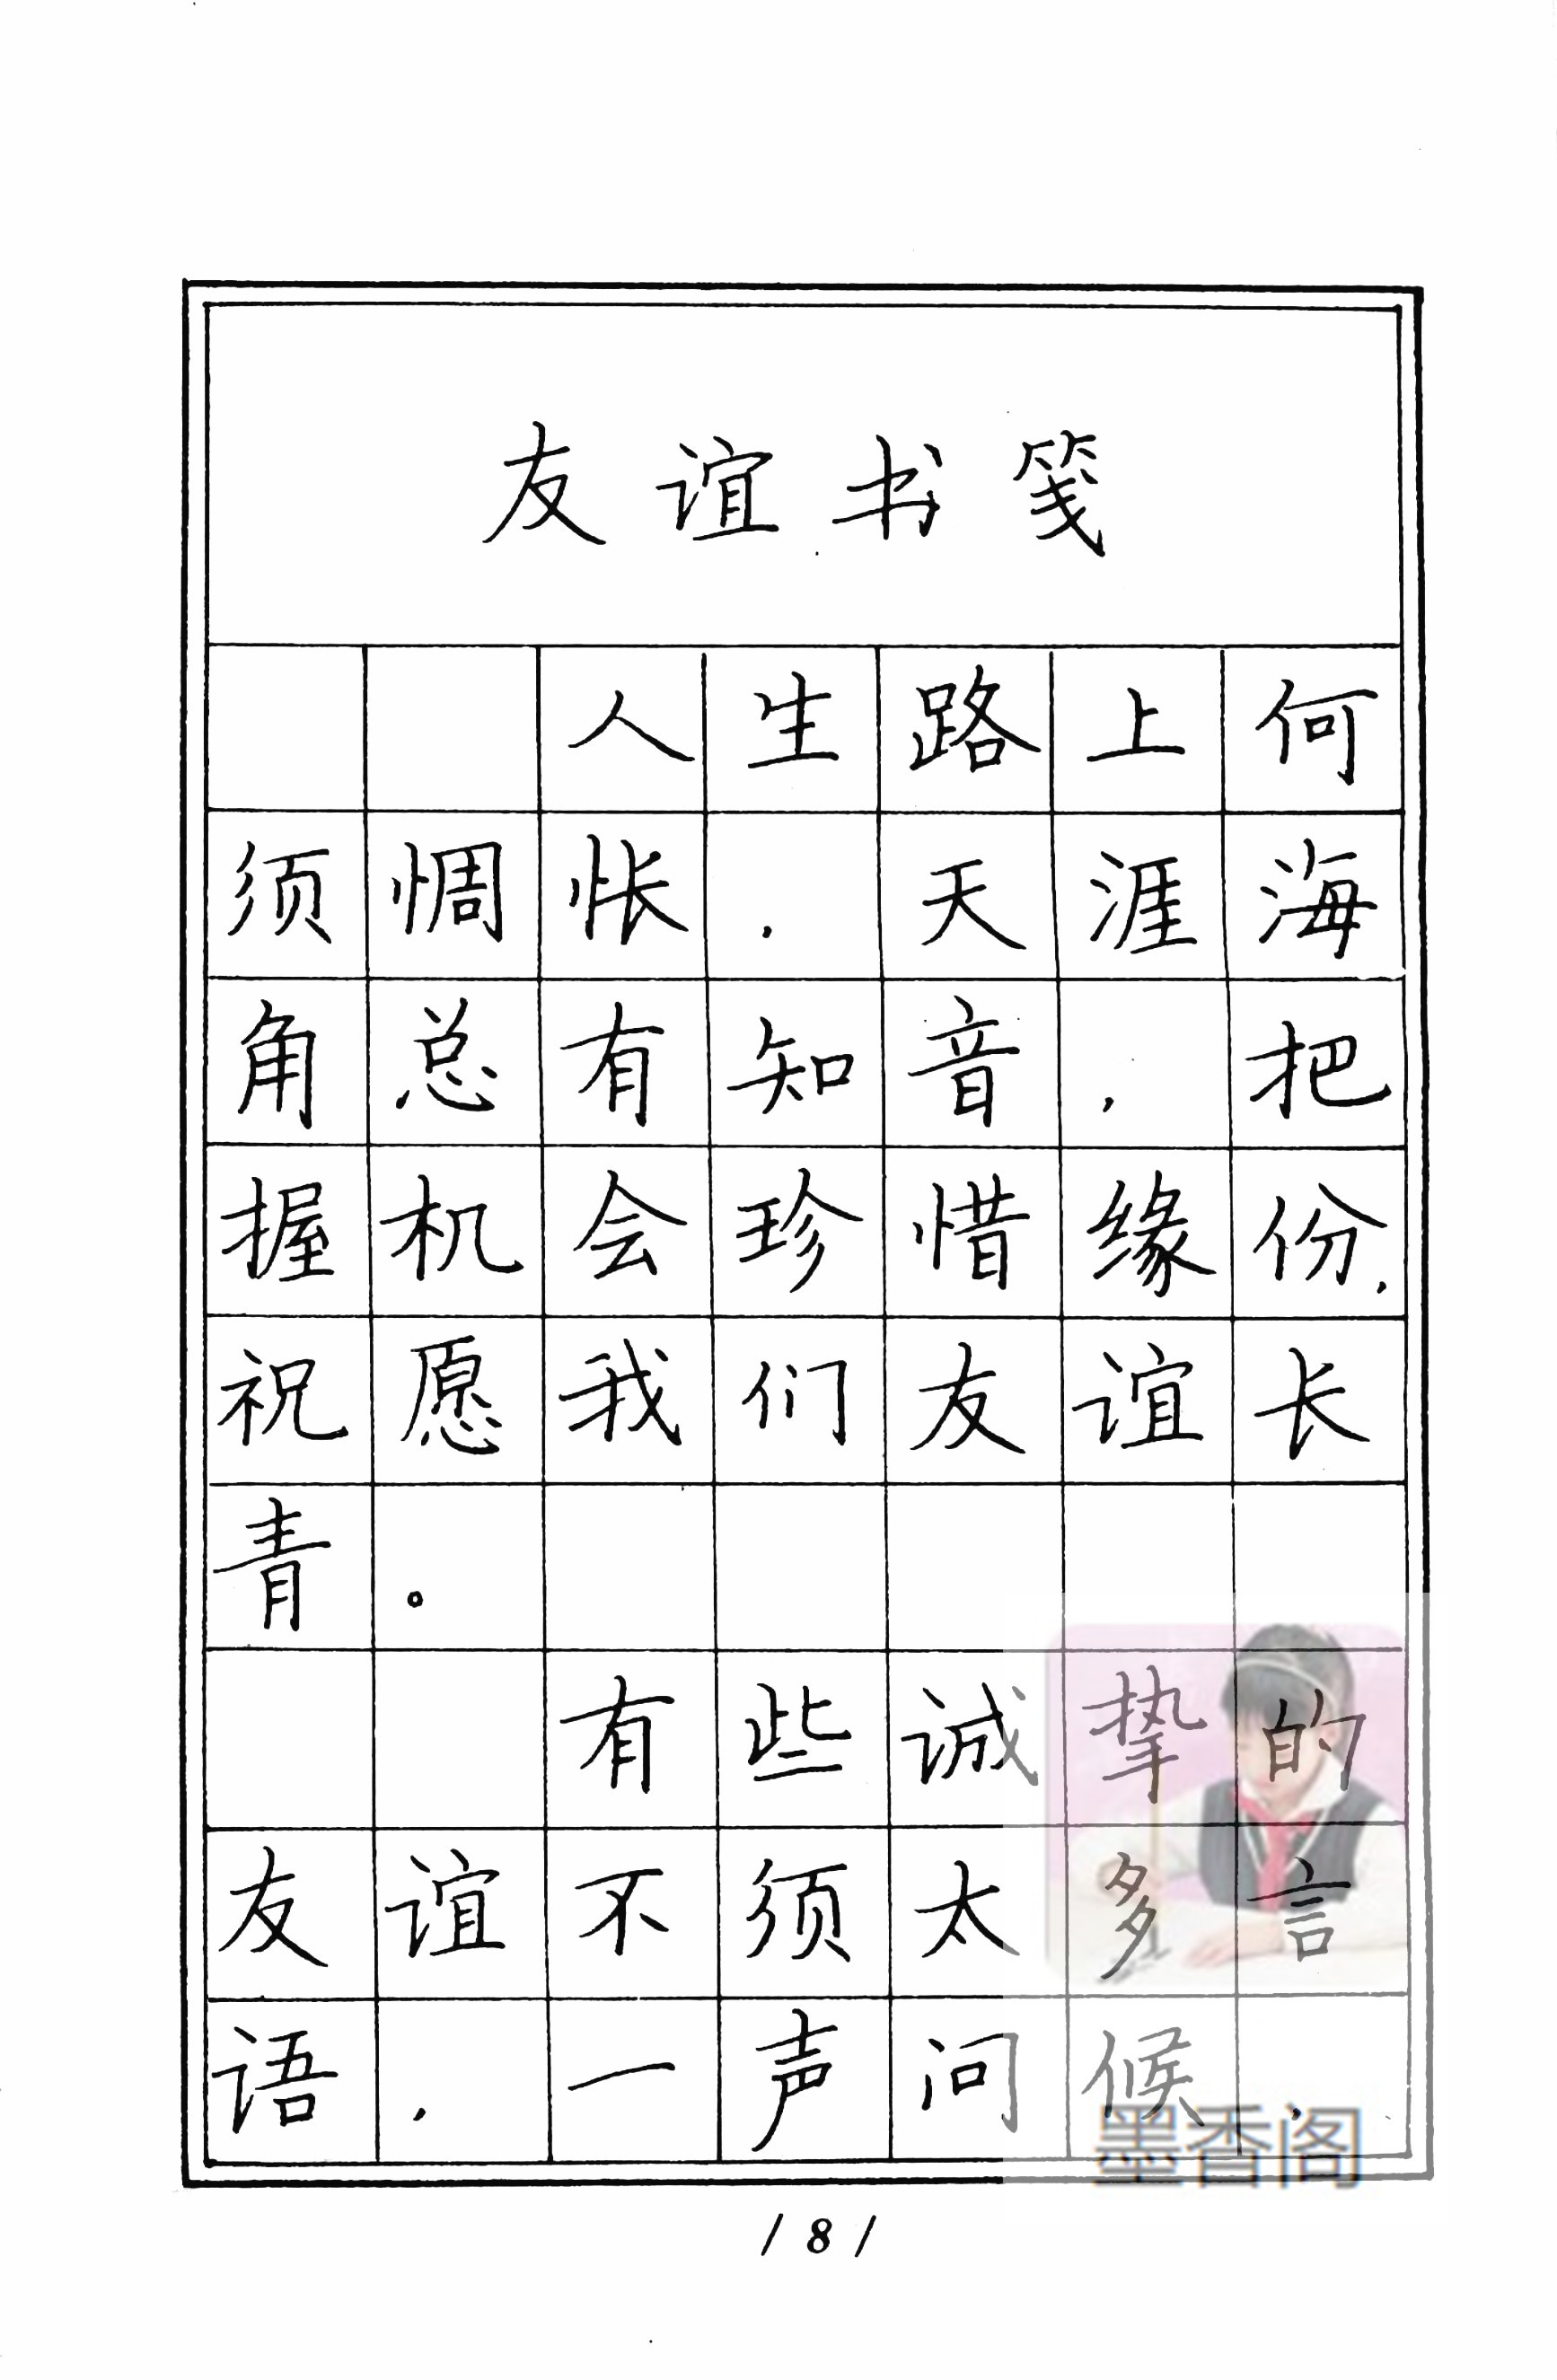 友谊书笺
人生路上何
须惆怅，天涯海
角总有知音，把
握机会珍惜缘份，
祝愿我们友谊长
青。
有些诚挚的
友谊不须太多言
语，一声问候，
墨香阁
/8/